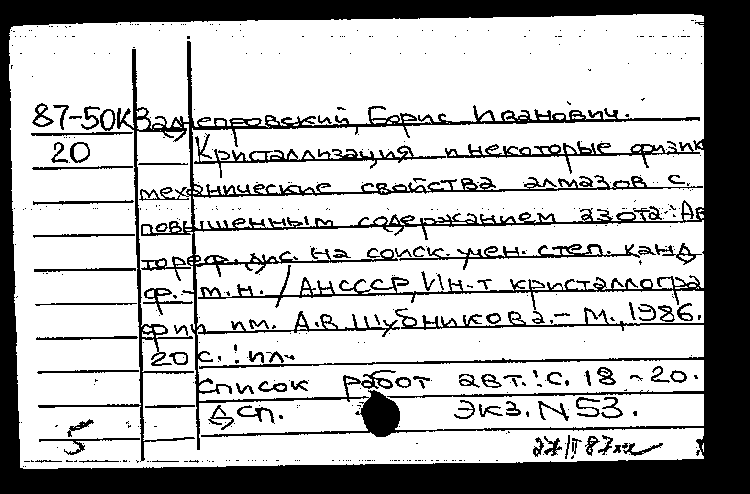 87-50К Заднепровский, Борис Иванович.
20 Кристаллизация и некоторые физик
механические свойства алмазов с
повышенным содержанием азота: Ав
тореф. дис. на соиск. учен. степ. канд
ф.-м.н. / АНСССР, Ин-т кристаллогра
фии им. А.В. Шубникова. - М., 1986.
20 с.: ил.
Список работ авт.: с. 18-20.
Дсп. Экз. N 53.
5